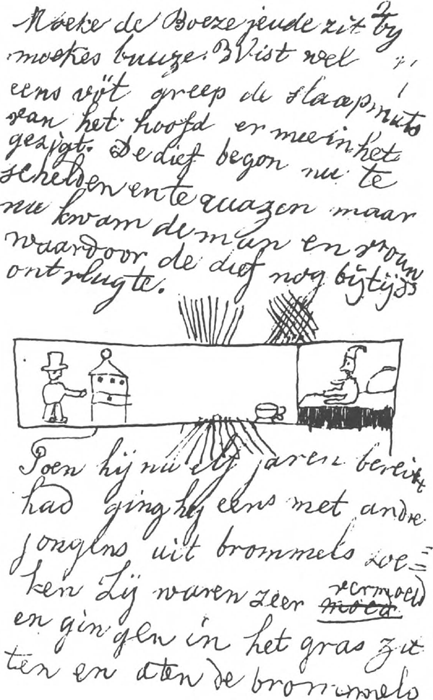 Moeke de Boeze jeude zit by
moekes buuze. Wist wel
eens vöt greep de slaapmuts
van het hoofd er mee in het
gezigt. De dief begon nu te
schelden en te maar
nu kwam de man en vrouw
waardoor de dief nog bijtijds
ontvlugte.
Poen hij nu elf jaren bereikt
had ging hij eens met andre
jongens uit brommels zoe=
ken Zij waren zeer vermoeid
en gingen in het gras zit
ten en aten de brommels